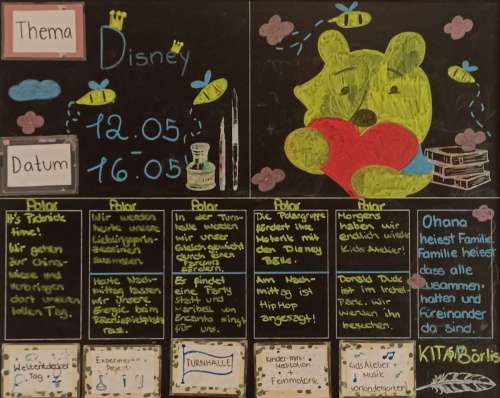 Thema
Disney
12.05
-
16.05
Datum
Polar
It's Picknick
time!
Wir gehen
zur China-
wiese und
verbringen
dort unseren
tollen Tag.
Polar
Wir werden
heute unsere
sammeln
Heute Nach-
mittag lassen
wir unsere
Energie beim
raus.
Polar
In der Turn-
halle werden
wir unser
Gleichgewicht
durch einen
Parcours
fördern.
Es findet
eine Party
statt und
Maribel von
Encanto singt
für uns.
Polar
Die Polargruppe
fördert ihre
Motorik mit
den Disney
Bälle.
Am Nach-
mittag ist
HipHop
angesagt!
Polar
Morgens
haben wir
endlich wieder
Kids Atelier!
Donald Duck
ist im
Park. Wir
werden ihn
besuchen.
Ohana
heisst Familie.
Familie heisst
dass alle
zusammen-
halten und
füreinander
da sind.
KITA Börlis
Weltentdecker
Tag
Experimente
Projekt
TURNHALLE
Kinder-
Meditation
+
Feinmotorik
Kids Atelier
+
Musik